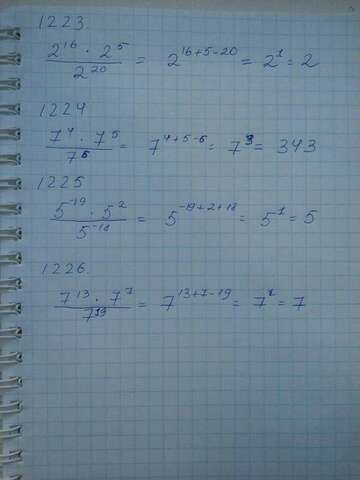 1223
2^16 · 2^5 / 2^20 = 2^16+5-20 = 2^1 = 2
1224
7^4 · 7^5 / 7^6 = 7^4+5-6 = 7^3 = 343
1225
5^-19 · 5^2 / 5^-18 = 5^-19+2+18 = 5^1 = 5
1226.
7^13 · 7^7 / 7^19 = 7^13+7-19 = 7^1 = 7